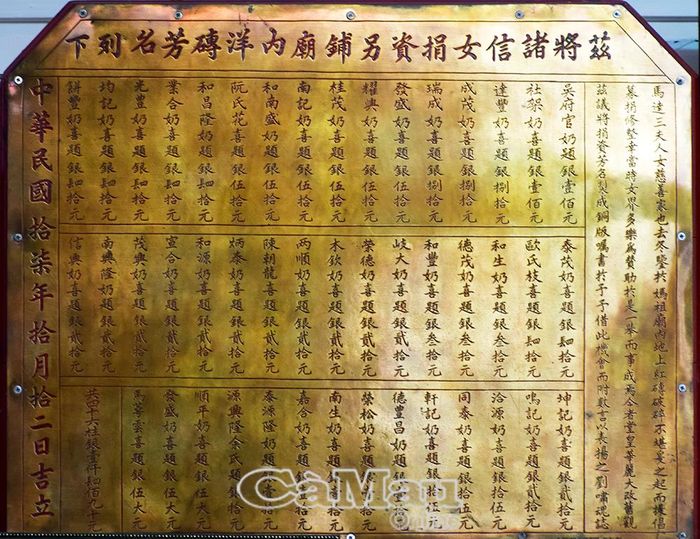 茲將諸信女捐資另鋪廟內洋磚芳名列下
馬逵三夫人女慈善家也去冬鑒於媽祖廟內地上紅磚破碎不堪爰之起而擴倡
募捐修整幸當時女界多樂為贊助於是一舉而事成矣今者堂皇華麗大改舊觀
茲議將捐資芳名製成銅版囑書於予予借此機會而附數言以表揚之劉嘯魂誌
吳府官奶題銀壹佰元
社架奶喜題銀壹佰元
達豐奶喜題銀捌拾元
成茂奶喜題銀捌拾元
瑞成奶喜題銀捌拾元
發盛奶喜題銀伍拾元
耀興奶喜題銀伍拾元
桂茂奶喜題銀伍拾元
南記奶喜題銀伍拾元
和南盛奶題銀伍拾元
阮氏花喜題銀伍拾元
和昌隆奶題銀肆拾元
業合奶喜題銀肆拾元
光豐奶喜題銀肆拾元
均記奶喜題銀肆拾元
餅豐奶喜題銀肆拾元
泰茂奶喜題銀肆拾元
歐氏枝喜題銀肆拾元
和生奶喜題銀叁拾元
德茂奶喜題銀叁拾元
和豐奶喜題銀叁拾元
岐大奶喜題銀貳拾元
榮德奶喜題銀貳拾元
木欽奶喜題銀貳拾元
兩順奶喜題銀貳拾元
陳朝龍喜題銀貳拾元
炳泰奶喜題銀貳拾元
和源奶喜題銀貳拾元
宣合奶喜題銀貳拾元
茂興奶喜題銀貳拾元
南興隆奶題銀貳拾元
信興奶喜題銀貳拾元
坤記奶喜題銀貳拾元
鳴記奶喜題銀貳拾元
洽源奶喜題銀拾伍元
同泰奶喜題銀拾伍元
軒記奶喜題銀拾伍元
德豐昌奶題銀
榮松奶喜題銀
南生奶喜題銀
嘉合奶喜題
泰源隆奶題
源興隆余氏題
順平奶喜題銀伍大元
發盛奶喜題銀伍大元
馬翠雲喜題銀伍大元
共四十六柱銀壹仟肆佰九十元
中華民國拾柒年拾月拾二日吉立
CàMau
Online